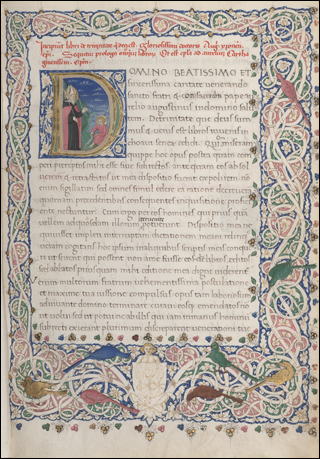 Incipiunt libri de trinitate
Sequitur prologus
DOMINO BEATISSIMO ET
sincerissima caritate venerando
sancto fratri et consacerdoti pape
relio augustinus in domino salu
tem. De trinitate que deus sum
mus & verus est libros iuvenis in
choavi senex edidi. Omiseram
quippe hoc opus postea quam com
peri prereptos mihi esse sive subreptos antequam eos absol
verem & retractatos ut mea dispositio fuerat expolirem no
enim sigillatim sed omnes simul edere ea ratione decreveram
quoniam precedentibus consequentes inquisitione proficie
nte nectuntur. Cum ergo per eos homines qui prius quam
vellem ad quosdam illorum pervenire potuerunt. Dispositio mea ne
quivisset impleri interruptam dictationem meam reliq
ueram cogitans hoc ipsum in aliquibus scriptis meis conqu
eri ut scirent qui possent non a me fuisse eosdem libros editos
sed ablatos prius quam mihi editione mea digni viderent
Verum multorum fratrum vehementissima postulatione
et maxime tua iussione compulsus opus tam laboriosum
adiuvante domino terminare curavi eosque emendatos no
nt ut volui sed ut potui ne ab illis qui iam in manus hominum
subrepti exierant plurimum discreparent venerationi tue